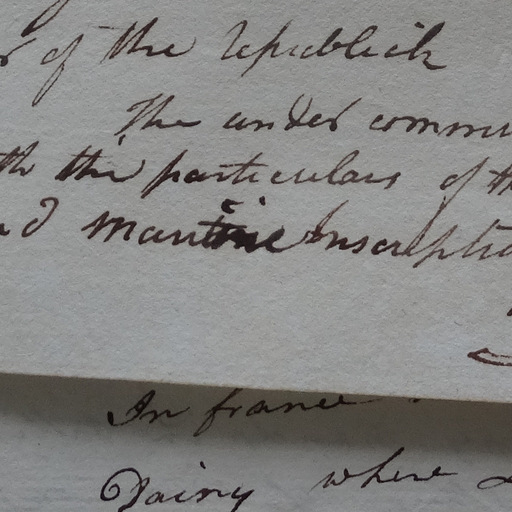 of the republick
The under commu
the particulars of th
Inscriptio
In france
where